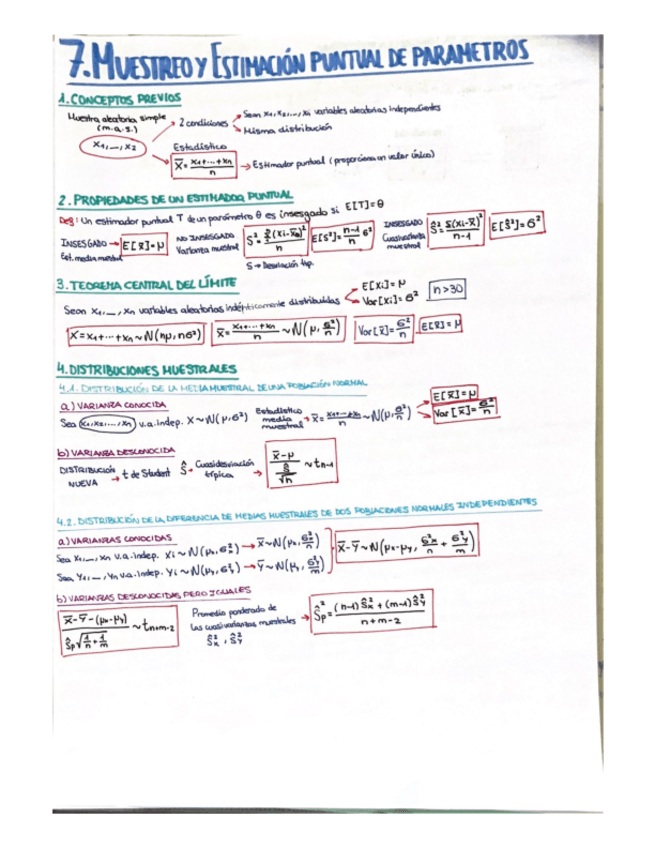 7. MUESTREO Y ESTIMACIÓN PUNTUAL DE PARAMETROS
1. CONCEPTOS PREVIOS
Muestra aleatoria simple (m.a.s.) → 2 condiciones → Sean x₁, x₂, ..., xₙ variables aleatorias independientes
→ Misma distribución
x₁, ..., x₂
Estadístico
X̄ = (x₁+...+xₙ)/n → Estimador puntual (proporciona un valor único)
2. PROPIEDADES DE UN ESTIMADOR PUNTUAL
Def: Un estimador puntual T de un parámetro θ es insesgado si E[T]=θ
INSESGADO → E[x̄]=μ
Est. media muestral
NO INSESGADO
Varianza muestral
S² = Σ(xi-x̄)²/n
E[S²] = (n-1)/n σ²
S → Desviación tip.
INSESGADO
Cuasivarianza muestral
Ŝ² = Σ(xi-x̄)²/(n-1)
E[Ŝ²]=σ²
3. TEOREMA CENTRAL DEL LÍMITE
Sean x₁, ..., xₙ variables aleatorias idénticamente distribuidas
E[Xi]=μ
Var[Xi]=σ²
n>30
X=x₁+...+xₙ ~ N(nμ, nσ²)
X̄ = (x₁+...+xₙ)/n ~ N(μ, σ²/n)
Var[x̄]=σ²/n
E[x̄]=μ
4. DISTRIBUCIONES MUESTRALES
4.1. DISTRIBUCIÓN DE LA MEDIA MUESTRAL DE UNA POBLACIÓN NORMAL
a) VARIANZA CONOCIDA
Sea (x₁, x₂, ..., xₙ) v.a. indep. X ~ N(μ, σ²) Estadístico media muestral → X̄ = (x₁+...+xₙ)/n ~ N(μ, σ²/n)
E[X̄]=μ
Var[X̄]=σ²/n
b) VARIANZA DESCONOCIDA
DISTRIBUCIÓN NUEVA → t de Student Ŝ → Cuasidesviación típica → (X̄-μ)/(Ŝ/√n) ~ tₙ₋₁
4.2. DISTRIBUCIÓN DE LA DIFERENCIA DE MEDIAS MUESTRALES DE DOS POBLACIONES NORMALES INDEPENDIENTES
a) VARIANZAS CONOCIDAS
Sea x₁, ..., xₙ v.a. indep. Xi ~ N(μx, σ²x) → X̄ ~ N(μx, σ²x/n)
Sea, Y₁, ..., Yn v.a. indep. Yi ~ N(μy, σ²y) → Ȳ ~ N(μy, σ²y/m)
X̄-Ȳ ~ N(μx-μy, σ²x/n + σ²y/m)
b) VARIANZAS DESCONOCIDAS PERO IGUALES
(X̄-Ȳ-(μx-μy))/(Ŝp√(1/n+1/m)) ~ tₙ₊ₘ₋₂
Promedio ponderado de
las cuasivarianzas muestrales
Ŝ²x, Ŝ²y
Ŝ²p = ((n-1)Ŝ²x + (m-1)Ŝ²y)/(n+m-2)